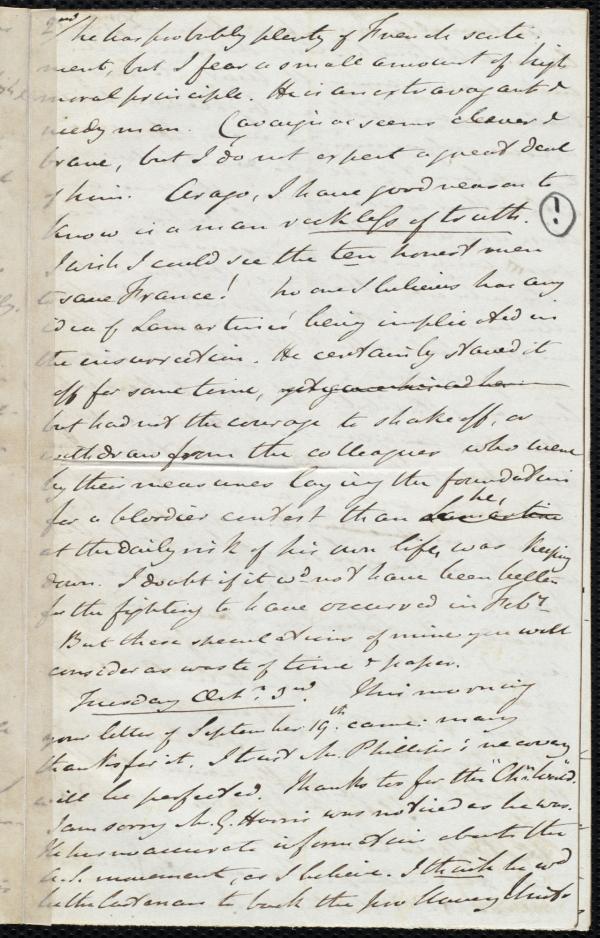 2nd/ he has probably plenty of French
ment, but I fear a small amount of high
moral principle. He is an extravagant &
needy man. Cavaignac seems clever &
brave, but I do not expect a great deal
of him. Arago, I have good reason to
know is a man reckless of truth. (!)
I wish I could see the ten honest men
to save France! No one I believe has any
idea of Lamartine's being implicated in
the insurrection. He certainly staved it
off for some time,
but had not the courage to shake off, or
withdraw from the colleagues who were
by their measures laying the foundations
for a bloodier contest than Lamartine he,
at the daily risk of his own life, was keeping
down. I doubt if it wd. not have been better
for the fighting to have occurred in Feby.
But these speculations of mine you will
consider as waste of time & paper.
Tuesday Octr. 3rd. This morning
your letter of September 19th. came: many
thanks for it. I trust Mr. Phillips's recovery
will be perfected. Thanks too for the "Ch: World".
I am sorry Mr. G. Harris was noticed as he was.
He has no accurate information about the
A.S. movement, as I believe. I think he wd
be the last man to back the pro slavery